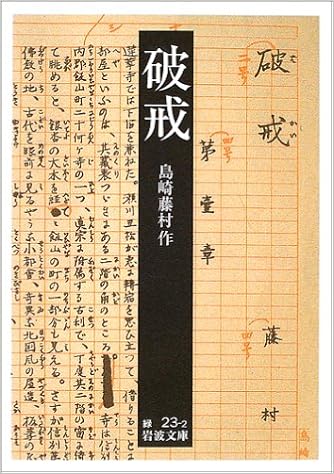 破戒
島崎藤村作
緑
23-2
岩波文庫
破戒
はかい
二号
第壹章
四号
藤村
四号
島崎
蓮華寺では下宿を兼ねた。瀬川丑松が急に轉宿を思ひ立つて、借りること
部屋といふのは、其藏裏つゞきにある二階の角のところ。寺は信
内郡飯山町二十何ヶ寺の一つ、眞宗に附屬する古刹で、丁度其二階の窓に
て眺めると、銀杏の大木を經てゝ飯山の町の一部分も見える。さすが信州
佛教の地、古代を眼前に見るやうな小都會、奇異な北國風の屋造、板葺の